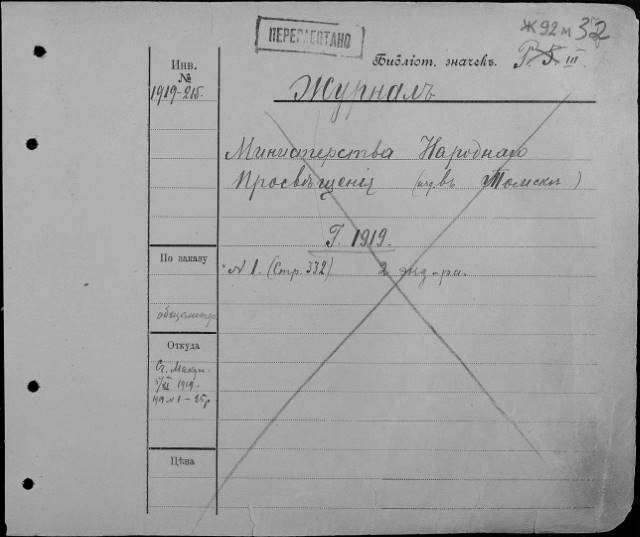 Ж 92 м 32
ПЕРЕРАБОТАНО
Библіот. значекъ. Р. 5. III.
Инв.
№
1919-215.
Журналъ
Министерства Народнаго
Просвѣщенія (изд. въ Томскѣ)
Г. 1919.
По заказу
№ 1. (Стр. 332) 2 экз-ра.
Откуда
Ст. Макуш.
1919.
1919 № 1 - 25 р
Цѣна